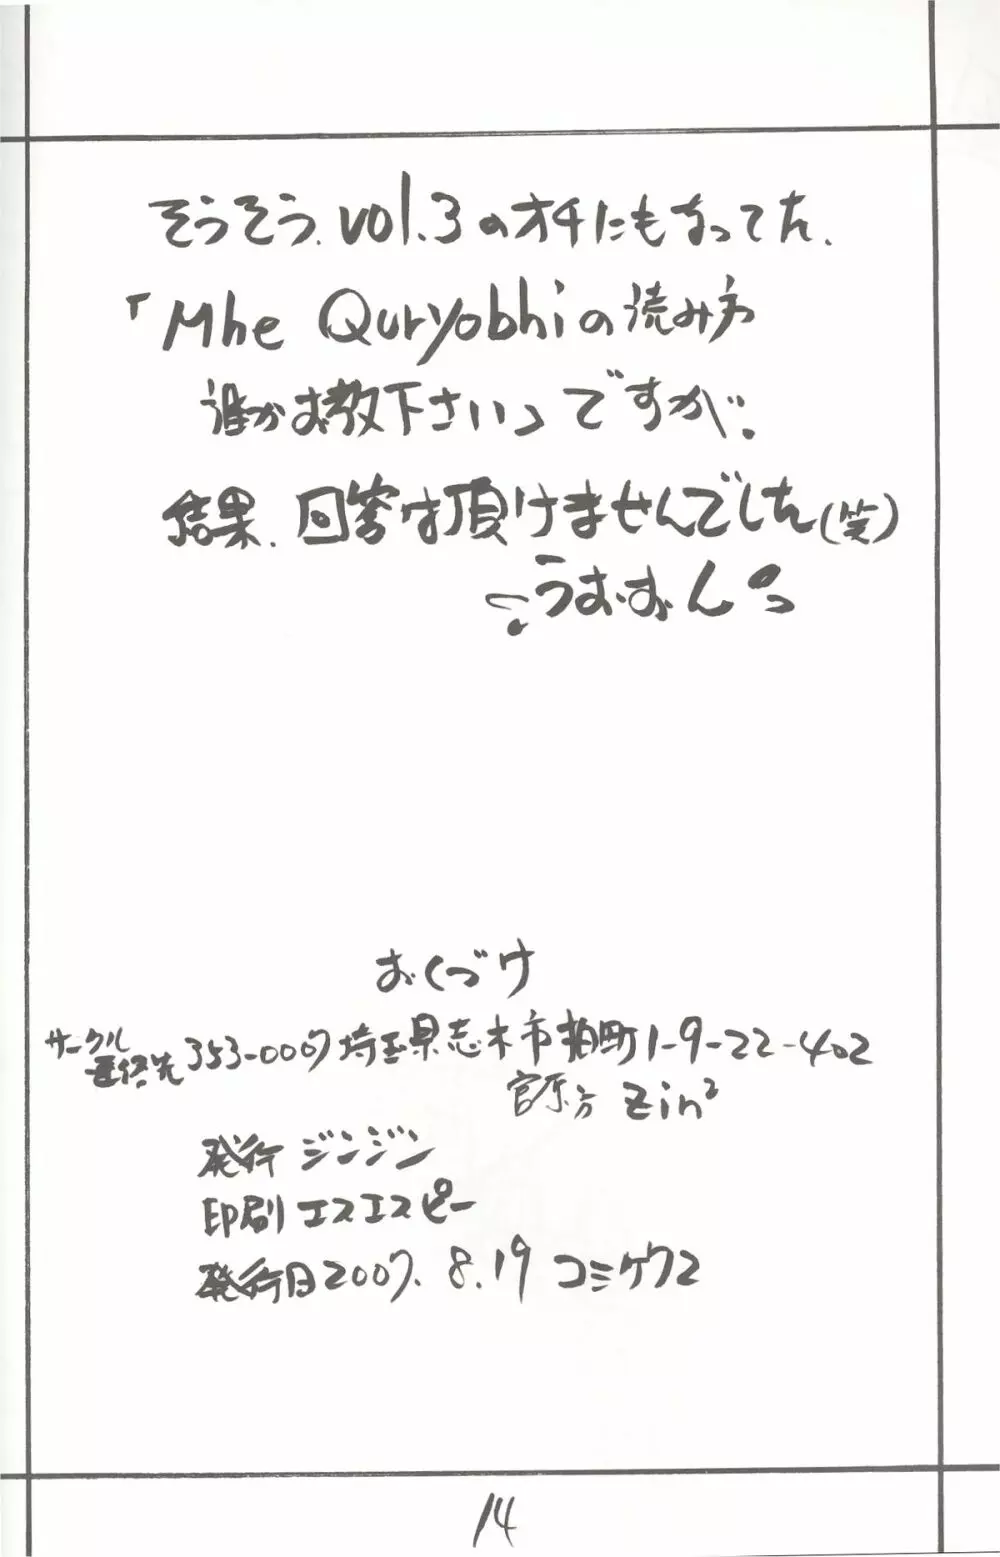 そうそう、vol.3のオチにもなってた、
「Mhe Quryobhiの読み方
誰かお教下さい」ですが、
結果、回答は頂けませんでした(笑)
うむむん
おくづけ
サークル
連絡先 353-0007 埼玉県志木市柏町1-9-22-402
宮原方 Zin²
発行 ジンジン
印刷 エスエスピー
発行日 2007.8.19 コミケ72
14